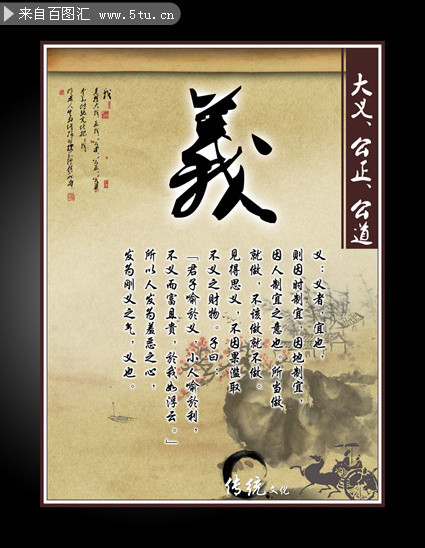 来自百图汇 www.5tu.cn
大义、公正、公道
義
义：义者，宜也，
则因时制宜，因地制宜，
因人制宜之意也。所当做
就做，不该做就不做。
见得思义，不因果滥取
不义之财物。子曰：
「君子喻於义 小人喻於利，
不义而富且贵，於我如浮云。」
所以人发为羞恶之心，
发为刚义之气，义也。
传统文化